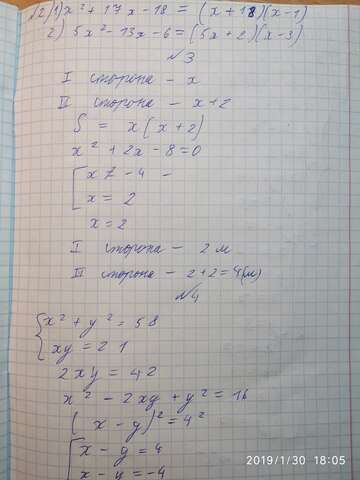 №2) 1) x² + 17x - 18 = (x + 18)(x - 1)
2) 5x² - 13x - 6 = (5x + 2)(x - 3)
№3
I сторона - x
II сторона - x + 2
S = x(x + 2)
x² + 2x - 8 = 0
[ x ≠ -4 -
x = 2
x = 2
I сторона - 2 м
II сторона - 2 + 2 = 4(м)
№4
{ x² + y² = 58
xy = 21
2xy = 42
x² - 2xy + y² = 16
(x - y)² = 4²
[ x - y = 4
x - y = -4
2019/1/30 18:05